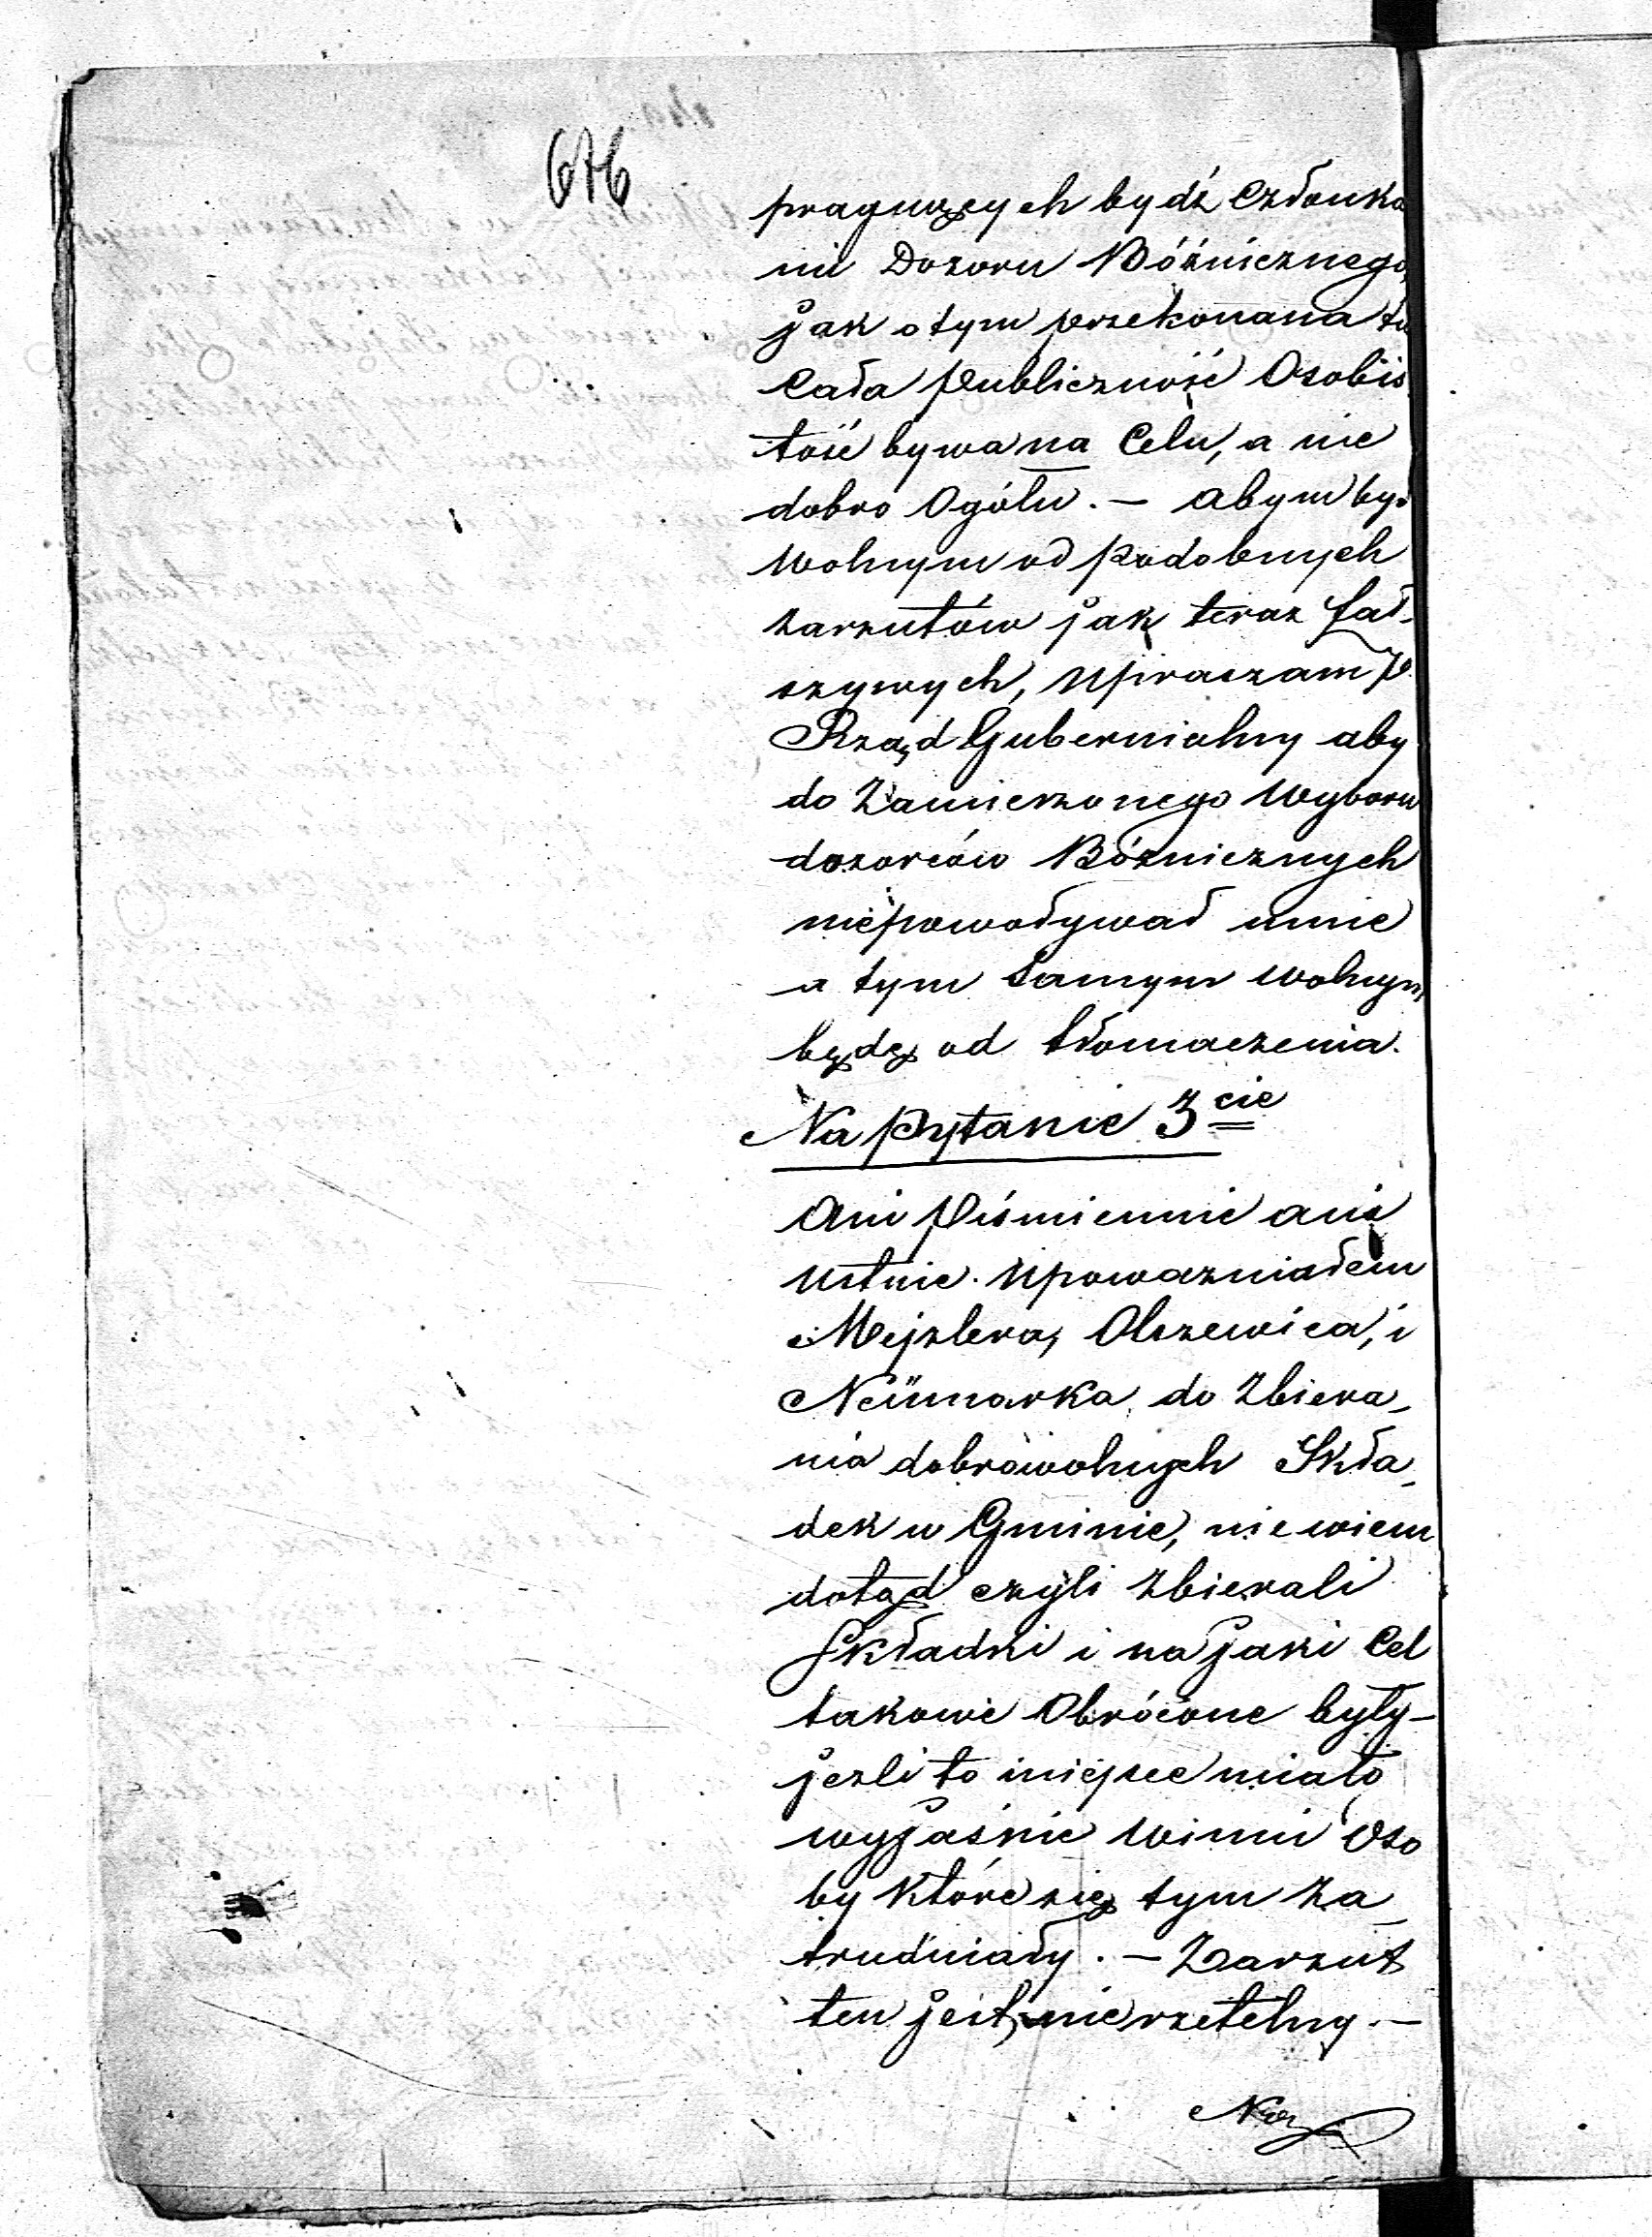 676
pragnących bydź Członka
mi Dozoru Bóżnicznego,
jak o tym przekonana tu
Cała publiczność Osobis
tość bywa na Celu, a nie
dobro Ogółu. — abym był
wolnym od podobnych
zarzutów jak teraz fał-
szywych, upraszam P.
Rząd Gubernialny aby
do Zamierzonego wyboru
dozorców Bóżnicznych
niepowoływał mnie
a tym samym wolnym
będę od tłomaczenia.
Na pytanie 3cie
Ani piśmiennie ani
ustnie upoważniałem
Mejzlera, Olszewica, i
Neümarka do Zbiera-
nia dobrowolnych Skła-
dek w Gminie, nie wiem
dotąd czyli zbierali
Składki i na jaki Cel
takowe Obrócone były —
jeżli to miejsce miało
wyjaśnić winni Oso
by które się tym za-
trudniały. — Zarzut
ten jest nierzetelny. —